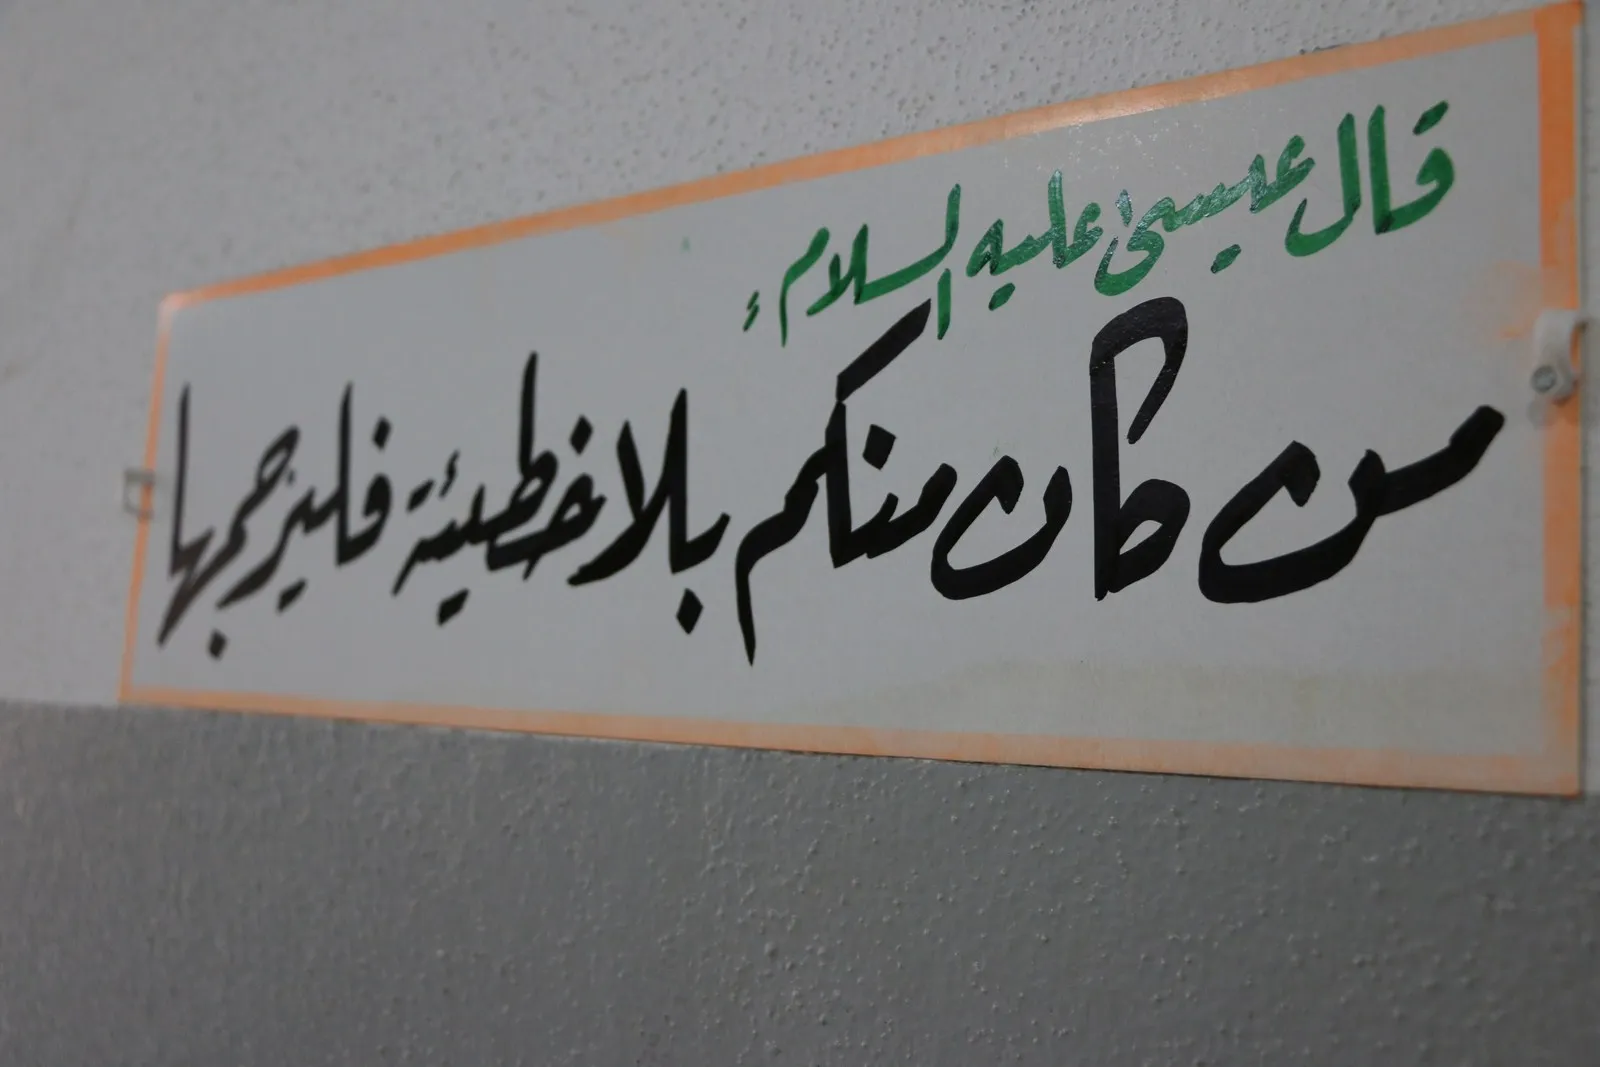 قال عيسى عليه السلام:
من كان منكم بلا خطيئة فليرجمها